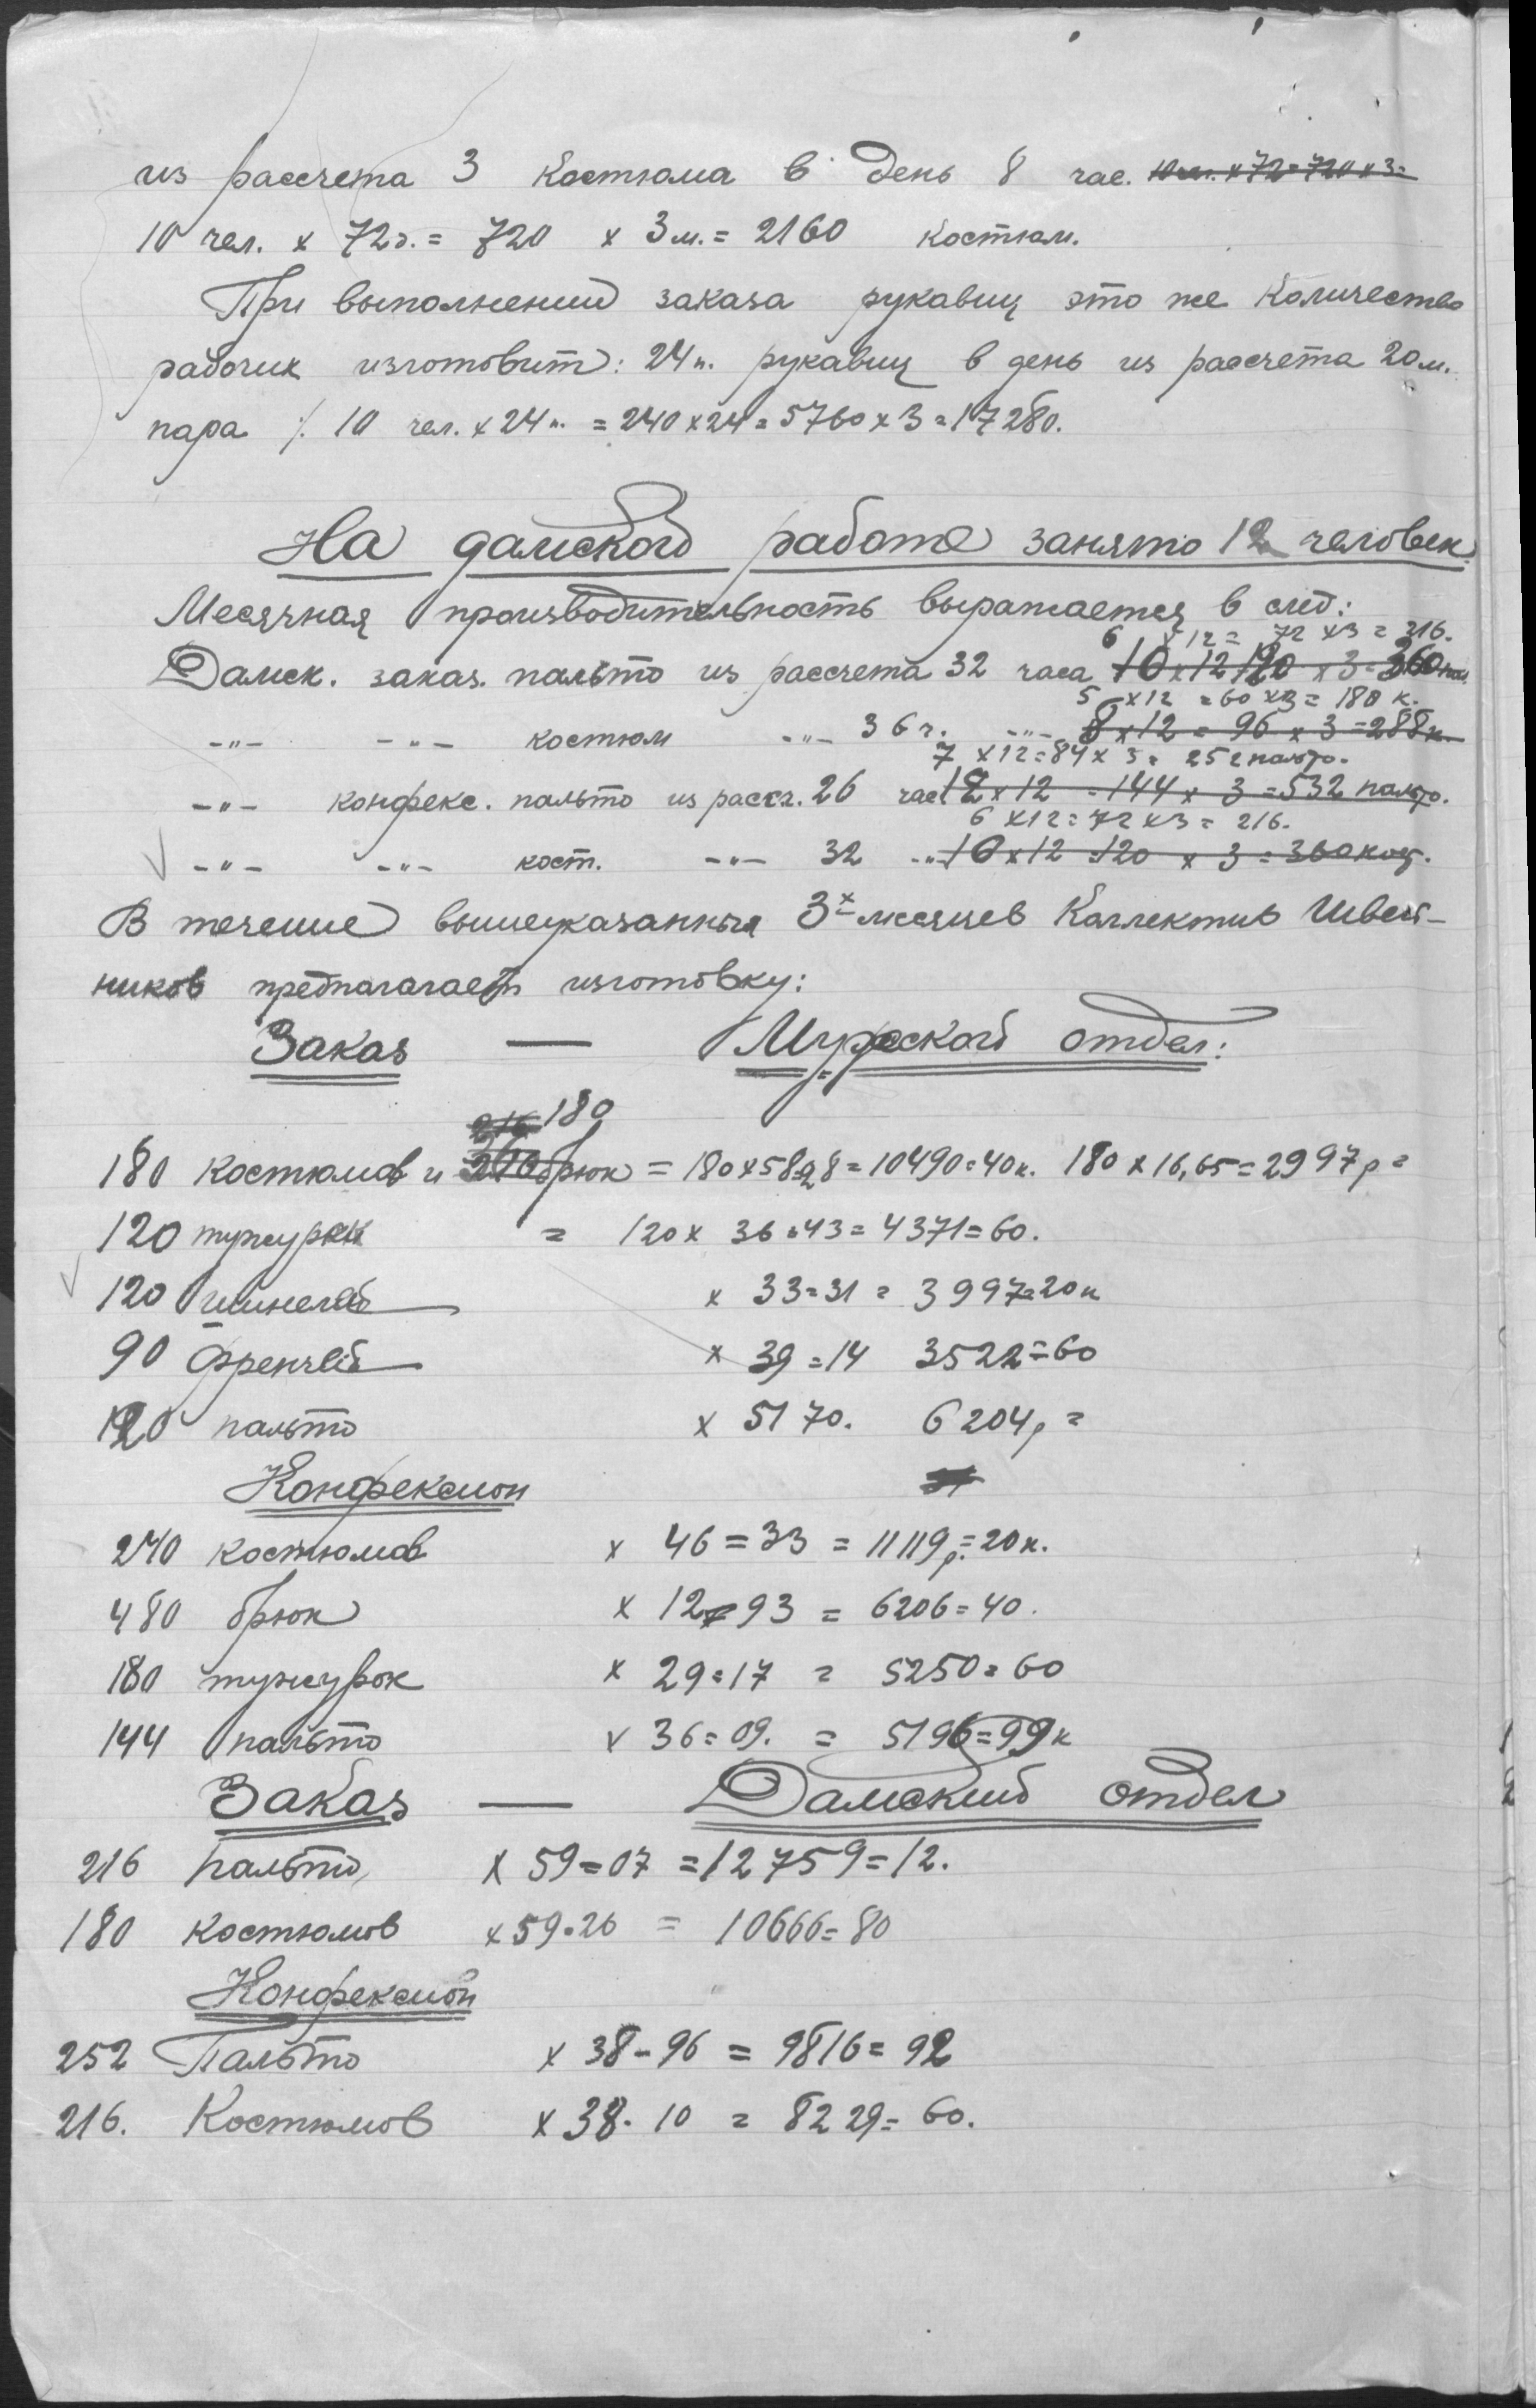 из рассчета 3 костюма в день 8 час. 10 чел. x 72 = 720 x 3 =
10 чел. x 72 д. = 720 x 3 м. = 2160 костюм.
При выполнений заказа рукавиц это же количество
рабочих изготовит: 24 п. рукавиц в день из рассчета 20 м.
пара ٪ 10 чел. x 24 п. = 240 x 24 = 5760 x 3 = 17280.
На дамской работе занято 12 человек.
Месячная производительность выражается в след:
6 x 12 = 72 x 3 = 216.
Дамск. заказ. пальто из рассчета 32 часа 10 x 12 120 x 3 = 360 пал.
5 x 12 = 60 x 3 = 180 к.
-"- -"- костюм -"- 36 ч. -"- 8 x 12 = 96 x 3 = 288 к.
7 x 12 = 84 x 3 = 252 пальто.
-"- конфекс. пальто из рассч. 26 час 12 x 12 = 144 x 3 = 532 пальто.
6 x 12 = 72 x 3 = 216.
-"- -"- кост. -"- 32 -"- 10 x 12 = 120 x 3 = 360 кос.
В течение вышеуказанных 3х месяцев Коллектив Швей-
ников предпалагает изготовку:
Заказ — Мужской отдел:
216 180
180 костюмов и брюк = 180 x 58=28 = 10490=40 к. 180 x 16,65 = 2997 р =
120 тужурок = 120 x 36=43 = 4371=60.
120 шинелей x 33=31 = 3997=20 к
90 Френчей x 39=14 3522=60
120 пальто x 51 70. 6204 р =
Конфексион
240 костюмов x 46=33 = 11119 р.=20 к.
480 брюк x 12=93 = 6206=40.
180 тужурок x 29=17 = 5250=60
144 пальто x 36=09. = 5196=99 к
Заказ — Дамский отдел
216 пальто x 59=07 = 12759=12.
180 костюмов x 59=26 = 10666=80
Конфексион
252 Пальто x 38-96 = 9816=92
216. Костюмов x 38.10 = 8229=60.